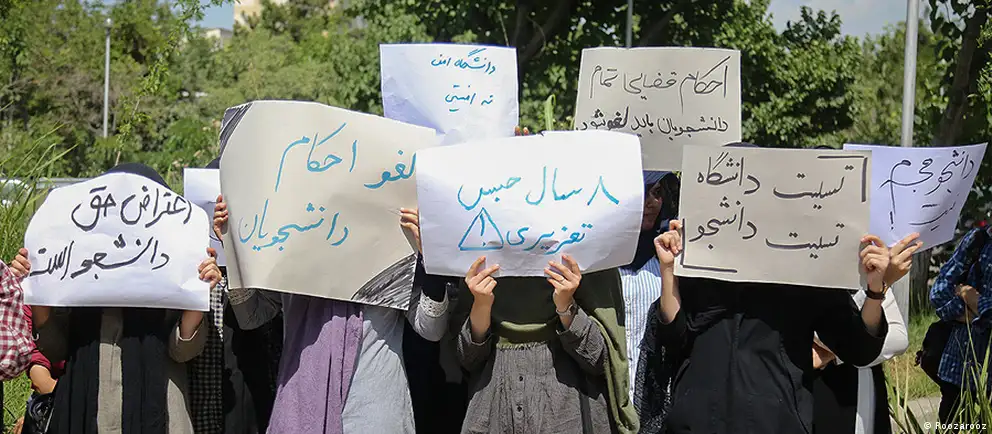 دانشگاه امن
نه امنیتی
احکام قضایی تمام
دانشجویان باید لغو شود
لغو احکام
دانشجویان
۸ سال حبس
تعزیری
!
تسلیت دانشگاه
تسلیت دانشجو
دانشجو مجرم
نیست
اعتراض حق
دانشجو است
© Roozarooz